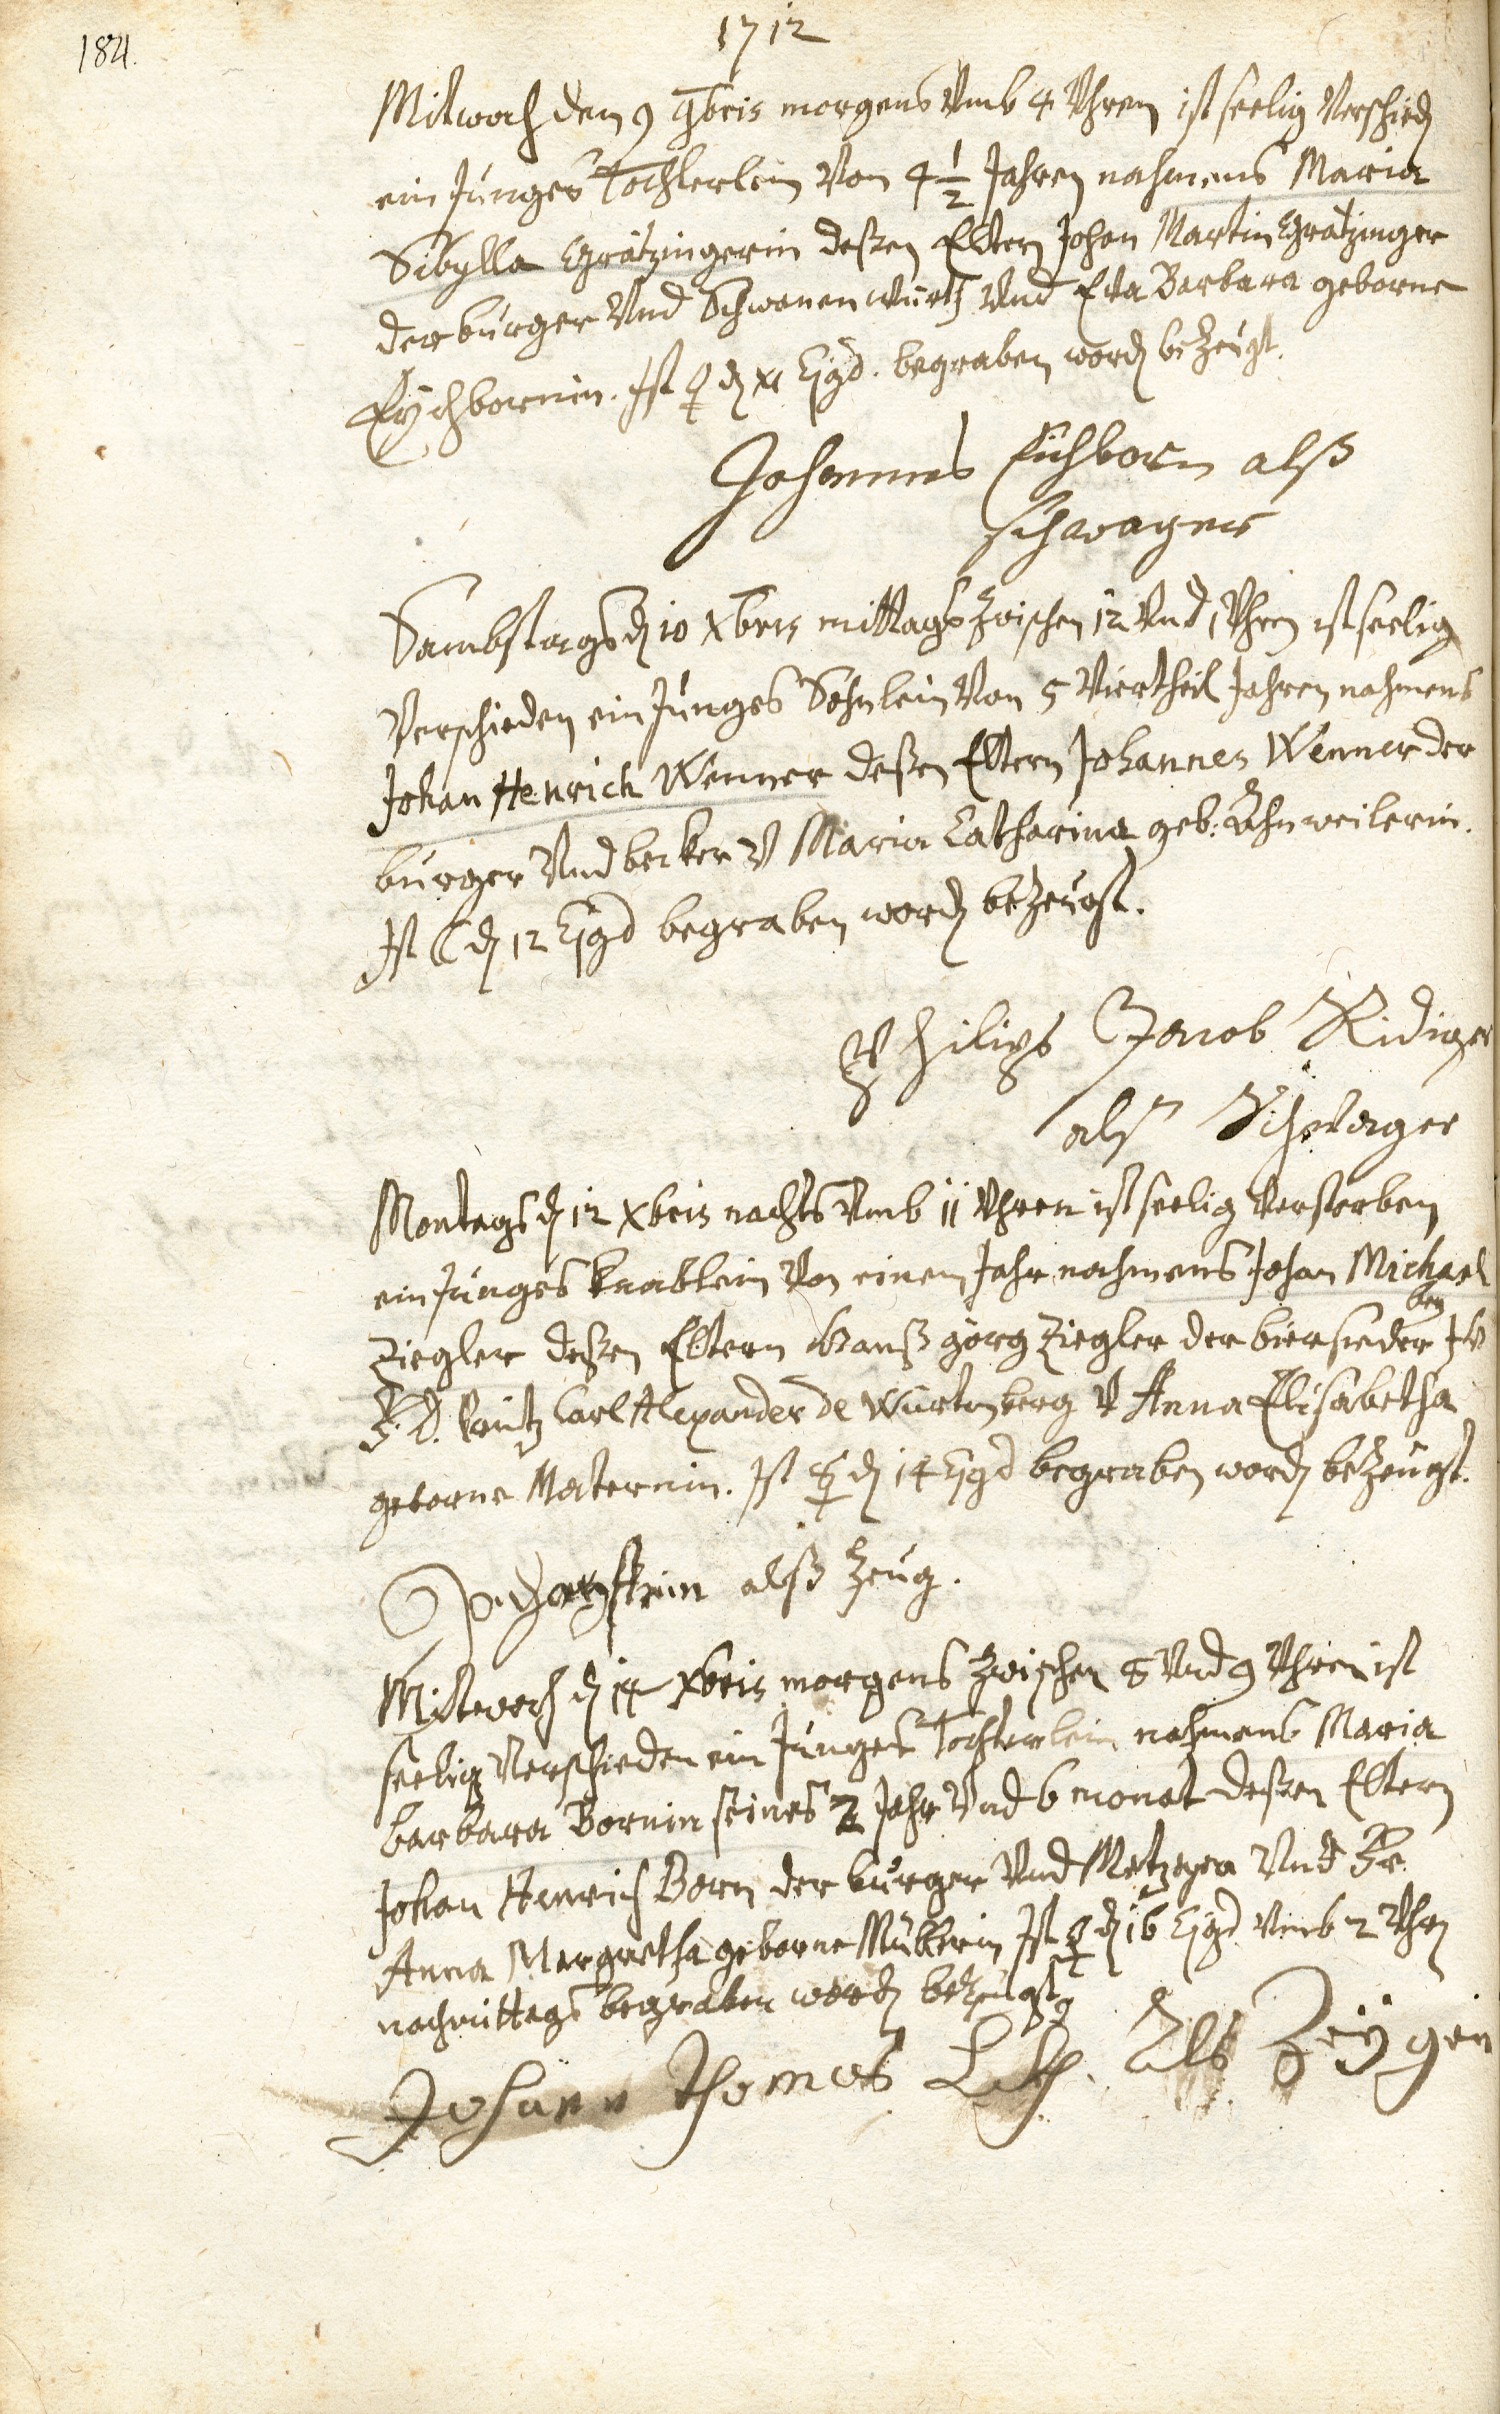 184.
1712
Mitwoch den 9 9bris morgens Vmb 4 Vhren ist seelig Verschied
ein Junges Tochterlein Von 4 1/2 Jahren nahmens Maria
Sibylla Grätzingerin deßen Eltern Johan Martin Grätzinger
der burger Vnd Schwanen würth Vnd Eva Barbara geborne
Eychbornin. Ist ♀ d XI Ejgd. begraben word bezeugt.
Johannes Eichborn alß
schwager
Sambstags d 10 Xbris mittags Zwischen 12 Vnd 1 Vhren ist seelig
Verschieden ein Junges Sohnlein Von 5 Viertheil Jahren nahmens
Johan Henrich Wenner deßen Eltern Johannes Wenner der
burger Vnd becker V Maria Catharina geb: Ahnweilerin.
Ist ☾ d 12 Ejgd begraben word bezeugt.
Philips Jacob Ridiger
alß Schwager
Montags d 12 Xbris nachts Vmb 11 Vhren ist seelig Verstorben
ein Junges knablein Von einem Jahr nahmens Johan Michael
Ziegler deßen Eltern Hanß görg Ziegler der biersieder bey
Printz Carl Alexander de Würtenberg V Anna Elisabetha
geborne Maternin. Ist ☿ d 14 Ejgd begraben word bezeugt.
alß Zeug.
Mitwoch d 14 Xbris morgens Zwischen 8 Vnd 9 Vhren ist
seelig Verschieden ein Junges Tochterlein nahmens Maria
barbara Bornin seines 2 Jahr Vnd 6 monat deßen Eltern
Johan Henrich Born der burger Vnd Metzger Vnd Fr
Anna Margretha geborne Müllerin Ist ♀ d 16 Ejgd Vmb 2 Vhren
nachmittags begraben word bezeugt
Johann Thomas als Zeügen